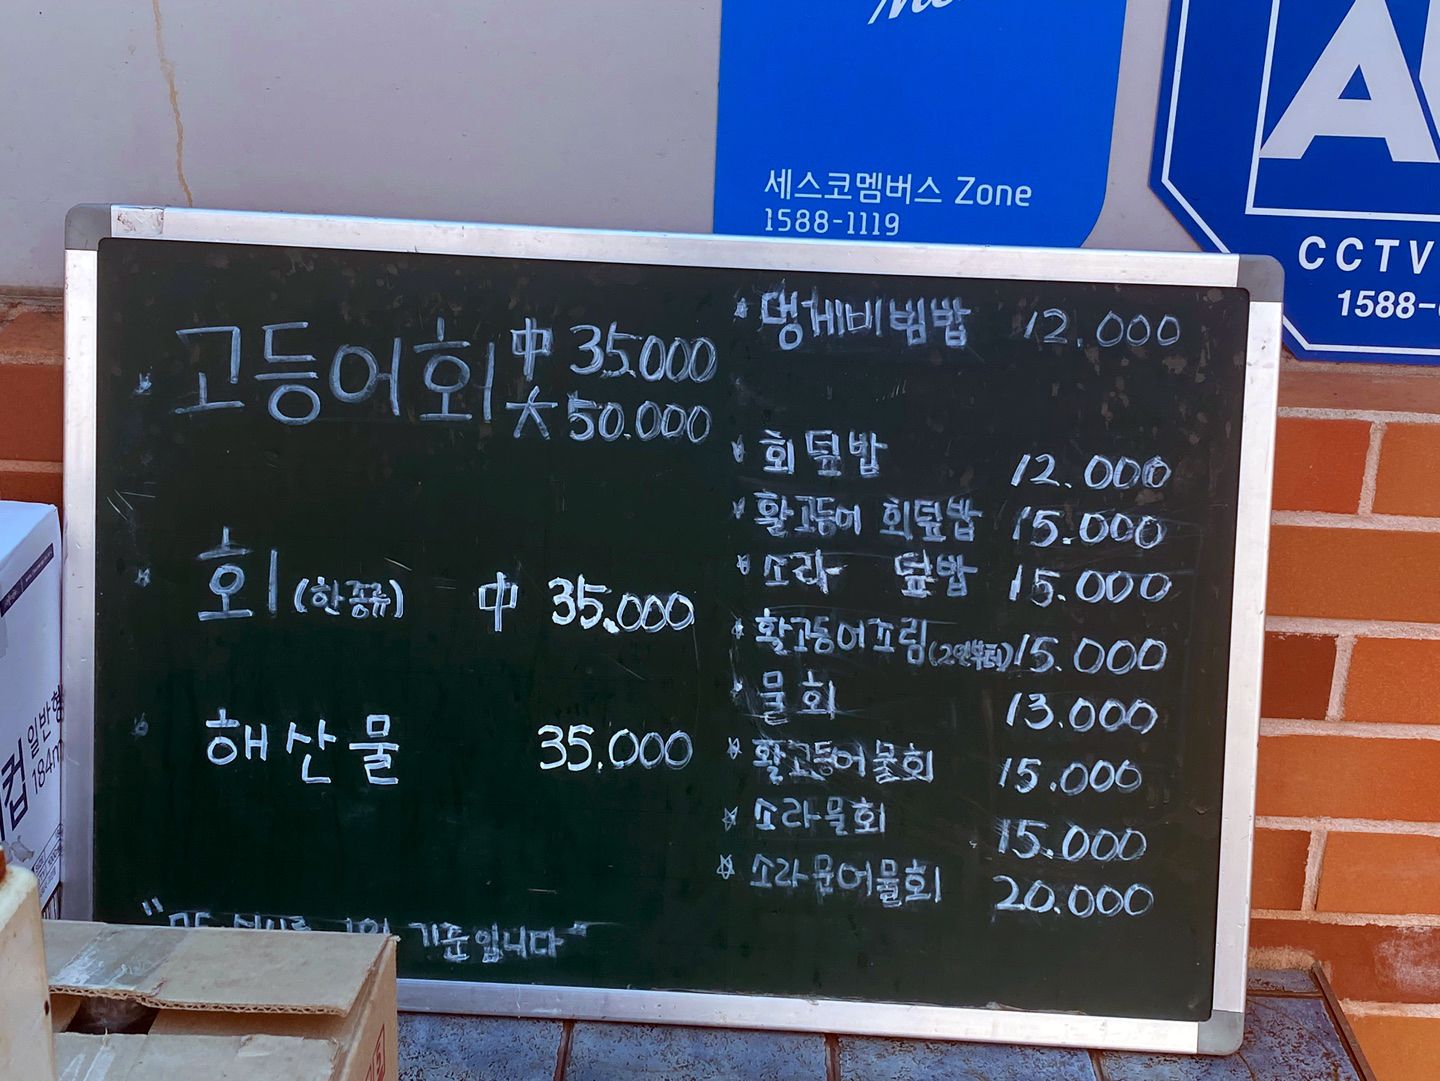 세스코멤버스 Zone
1588-1119
CCTV
1588-
고등어회 中 35.000
大 50.000
회 (한종류) 中 35.000
해산물 35.000
기준입니다"
댕게비빔밥 12.000
회덮밥 12.000
활고등어 회덮밥 15.000
소라 덮밥 15.000
활고등어조림 (2인부터) 15.000
물회 13.000
활고등어물회 15.000
소라물회 15.000
소라문어물회 20.000
컵
일반형
184m